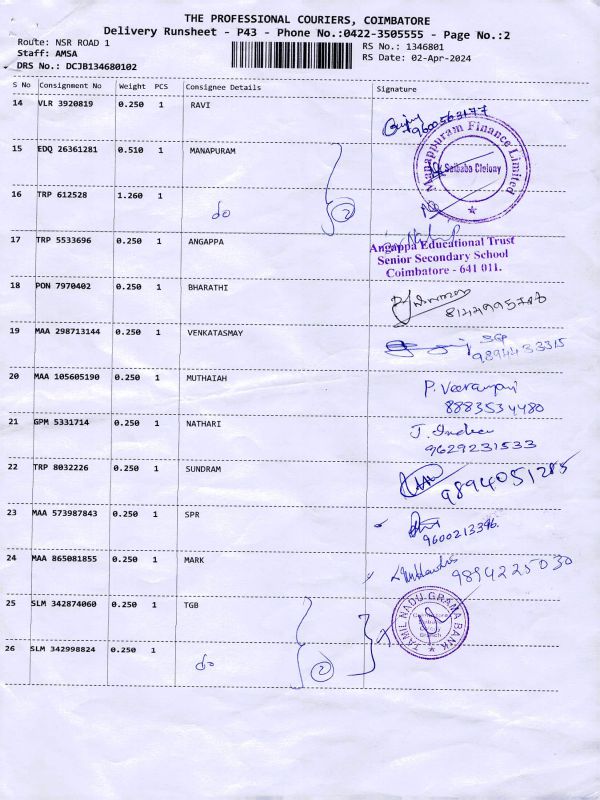 THE PROFESSIONAL COURIERS, COIMBATORE
Delivery Runsheet - P43 - Phone No.:0422-3505555 - Page No.:2
Route: NSR ROAD 1
Staff: AMSA
DRS No.: DCJB134680102
RS No.: 1346801
RS Date: 02-Apr-2024
S No Consignment No Weight PCS Consignee Details Signature
14 VLR 3920819 0.250 1 RAVI
9600563177
15 EDQ 26361281 0.510 1 MANAPURAM
Manappuram Finance Limited
Saibaba Clolony
16 TRP 612528 1.260 1 do 2
17 TRP 5533696 0.250 1 ANGAPPA
Angappa Educational Trust
Senior Secondary School
Coimbatore - 641 011.
18 PON 7970402 0.250 1 BHARATHI
19 MAA 298713144 0.250 1 VENKATASMAY
9894433315
20 MAA 105605190 0.250 1 MUTHAIAH
8883534480
21 GPM 5331714 0.250 1 NATHARI
J. Indra
9629231533
22 TRP 8032226 0.250 1 SUNDRAM
9894051285
23 MAA 573987843 0.250 1 SPR
9600213396
24 MAA 865081855 0.250 1 MARK
9894225030
25 SLM 342874060 0.250 1 TGB
TAMIL NADU GRAMA BANK
26 SLM 342998824 0.250 1 do 2